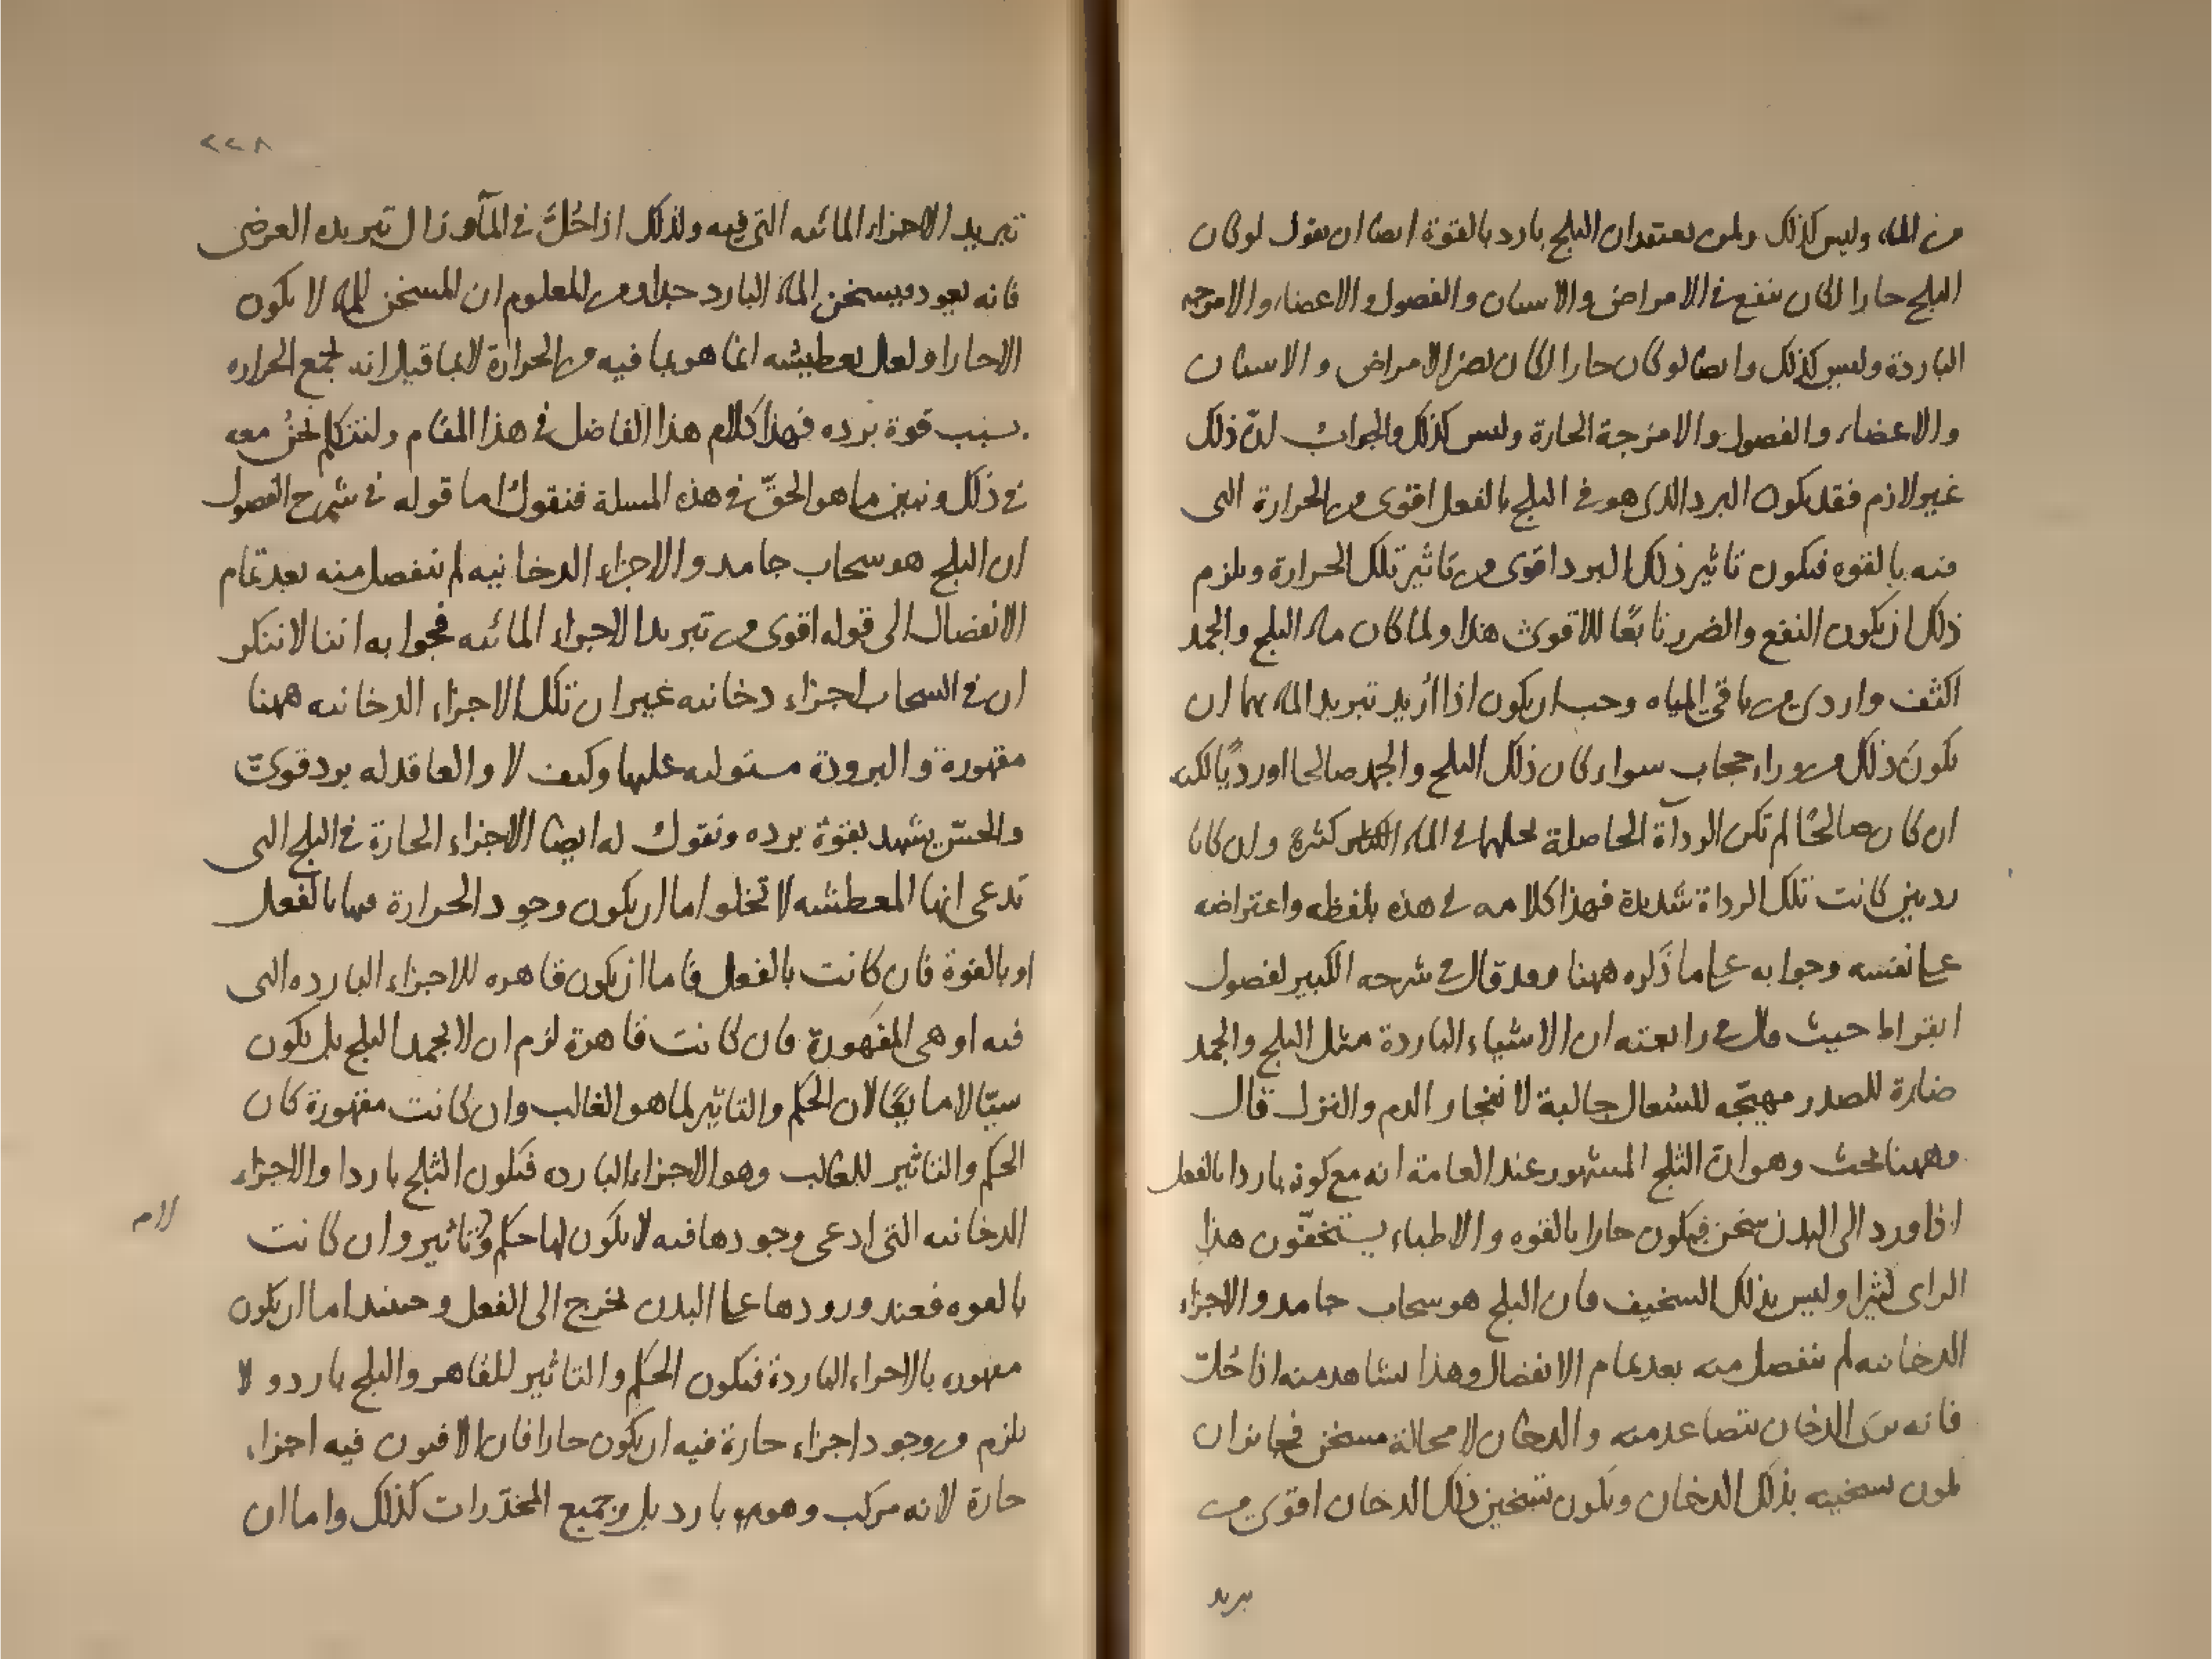 من الماء وليس كذلك ولمن يعتقد ان الثلج بارد بالقوة ايضا ان يقول لو كان
الثلج حارا لكان ينفع في الامراض والاسنان والفصول والاعضاء والامزجه
الباردة وليس كذلك وايضا لو كان حارا لكان يضر الامراض والاسنان
والاعضاء والفصول والامزجة الحارة وليس كذلك والجواب لان ذلك
غير لازم فقد يكون البرد الذي هو في الثلج بالفعل اقوى من الحرارة التي
فيه بالقوه فيكون تاثير ذلك البرد اقوى من تاثير تلك الحرارة ويلزم
ذلك ان يكون النفع والضرر تابعًا للاقوى هذا ولما كان ماء الثلج والجمد
اكثف واردى من باقي المياه وجب ان يكون اذا اريد تبريد الماء بهما ان
يكون ذلك من وراء حجاب سواء كان ذلك الثلج والجمد صالحا او رديًا لكنه
ان كان صالحًا لم تكن الرداآة الحاصلة بحلهما في الماء كثيرة وان كانا
رديين كانت تلك الرداة شديدة فهذا كلامه في هذه بلفظه واعتراضه
على نفسه وجوابه على ما ذكره ههنا وقد قال في شرحه الكبير لفصول
ابقراط حيث قال في رابعته ان الاشياء الباردة مثل الثلج والجمد
ضارة للصدر مهيّجه للسُعال جالبة لانفجار الدم والنزل قال
وههنا بحث وهو انّ الثلج المشهور عند العامة انه مع كونه باردا بالفعل
اذا ورد الى البدن سخن فيكون حارا بالقوه والاطباء يستخفّون هذا
الراى كثيرا وليس بذلك السخيف فان الثلج هو سحاب جامد والاجزاء
الدخانيه لم تنفصل منه بعد تمام الانفصال وهذا يشاهد منه اذا حُلّ
فانه يرى الدخان يتصاعد منه والدخان لا محالة مسخن فجائز ان
يكون تسخينه بذلك الدخان ويكون تسخين ذلك الدخان اقوى من
تبريد
٢٢٨
تبريد الاجزاء المائيه التي فيه ولذلك اذا حُلّ في المآء وزال تبريده العرضي
فانه يعود فيسخن الماء البارد جدا ومن المعلوم ان المسخن للماء لا يكون
الا حارا ولعل تعطيشه انما هو بما فيه من الحرارة لا بما قيل انه يجمع الحراره
بسبب قوة برده فهذا كلام هذا الفاضل في هذا المقام ولنتكلم نحنُ معه
في ذلك ونبين ما هو الحقّ في هذه المسلة فنقول اما قوله في شرح الفصول
ان الثلج هو سحاب جامد والاجزاء الدخانيه لم تنفصل منه بعد تمام
الانفصال الى قوله اقوى من تبريد الاجزاء المائيه فجوابه اننا لا ننكر
ان في السحاب اجزاء دخانيه غير ان تلك الاجزاء الدخانيه ههنا
مقهورة والبرودة مستوليه عليها وكيف لا والعاقد له برد قويّ
والحسّ يشهد بقوة برده ونقول له ايضا الاجزاء الحارة في الثلج التي
تدعى انها المعطشه لا تخلو اما ان يكون وجود الحرارة فيها بالفعل
او بالقوة فان كانت بالفعل فاما ان يكون قاهره للاجزاء البارده التي
فيه او هي المقهورة فان كانت قاهرة لزم ان لا يجمد الثلج بل يكون
سيّالا مايعًا لان الحكم والتاثير لما هو الغالب وان كانت مقهورة كان
الحكم والتاثير للغالب وهو الاجزاء البارده فيكون الثلج باردا والاجزاء
الدخانيه التي ادعى وجودها فيه لا يكون لها حكم وتاثير وان كانت
لام
بالقوه فعند ورودها على البدن يخرج الى الفعل وحينئذ اما ان يكون
مقهوره بالاجزاء الباردة فيكون الحكم والتاثير للقاهر والثلج بارد ولا
يلزم من وجود اجزاء حارة فيه ان يكون حارا فان الافيون فيه اجزاء
حارة لانه مركب وهو بارد بل وجميع المخدّرات كذلك واما ان